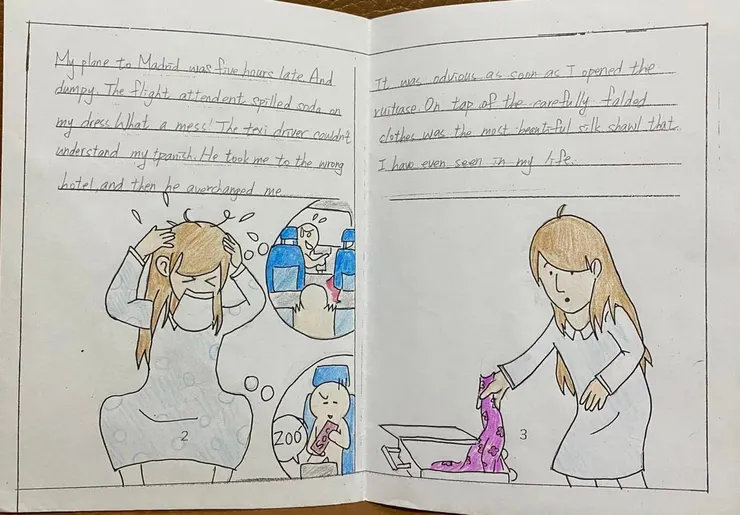 My plane to Madrid was five hours late. And
dumpy. The flight attendent spilled soda on
my dress. What a mess! The texi driver couldn't
understand my tpanish. He took me to the wrong
hotel, and then he averchanged me
ZOO
SO
2
It was odvious as soon as I opened the
ruitcase. On tap of the carefully falded
clothes was the most beautiful silk shawl that
I have even seen in my life.
3